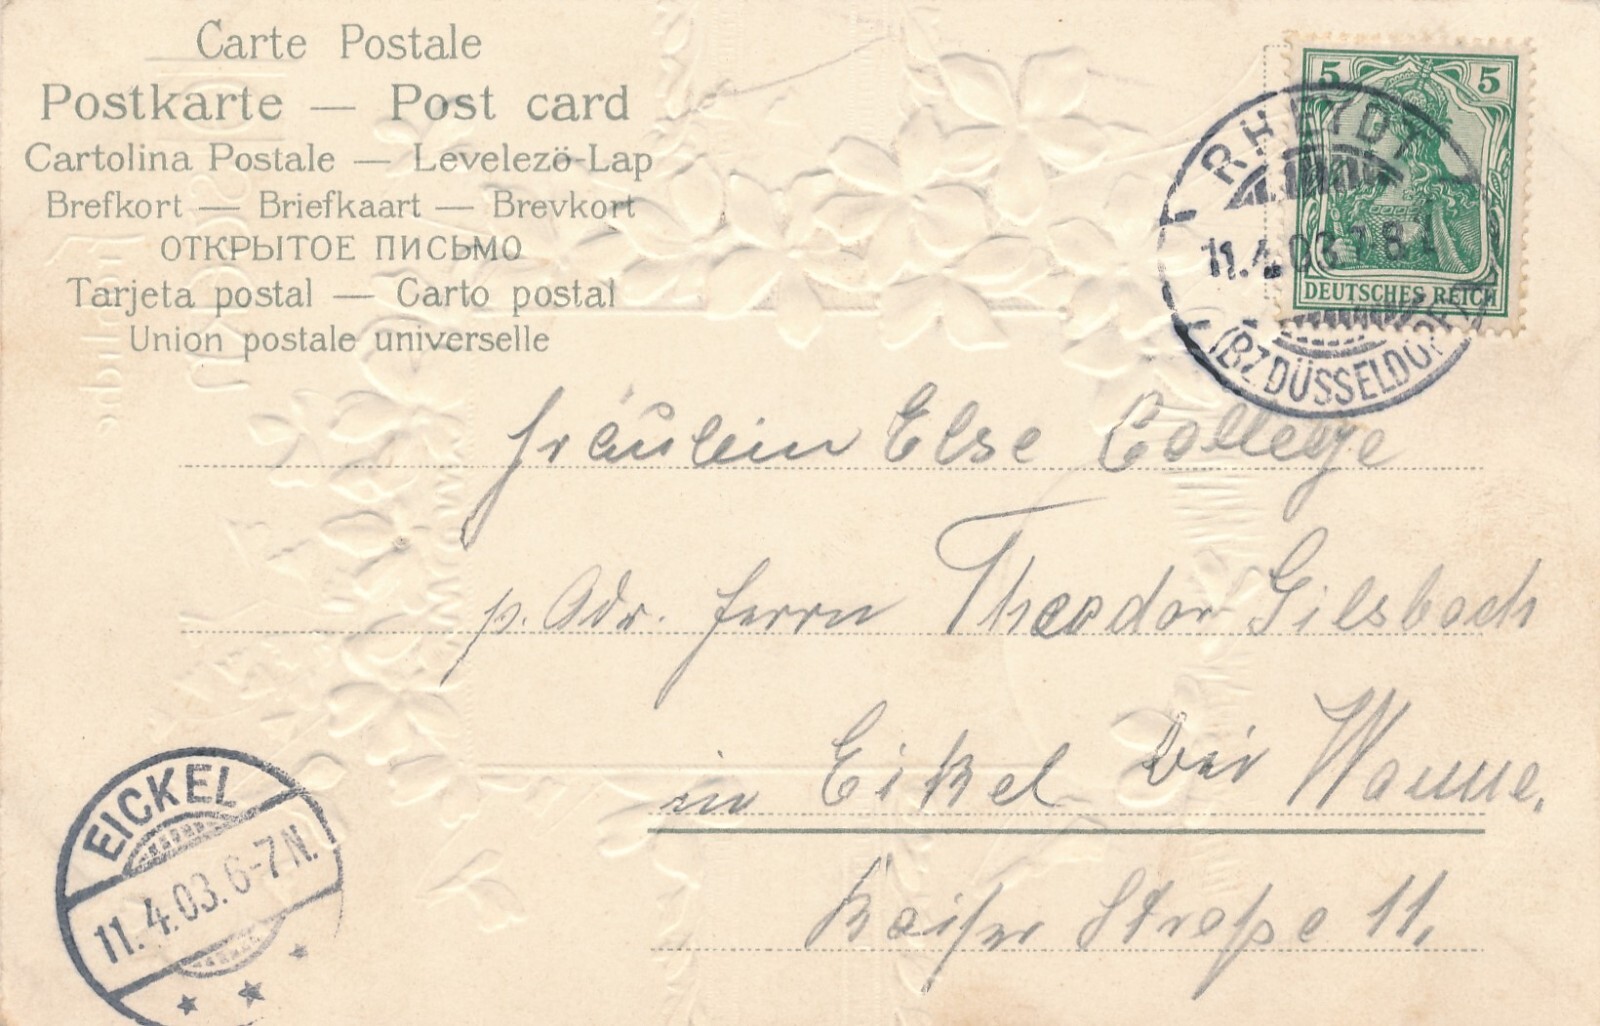 Carte Postale
Postkarte — Post card
Cartolina Postale — Levelezö-Lap
Brefkort — Briefkaart — Brevkort
ОТКРЫТОЕ ПИСЬМО
Tarjeta postal — Carto postal
Union postale universelle
5 5
DEUTSCHES REICH
RHEYDT
11.4.03.
(BZ DÜSSELDORF)
Fräulein Else
p. Adr. Herrn Theodor Gilsbach
in Eikel bei Wanne.
Kaiser Straße 11.
EICKEL
11.4.03.6-7N.